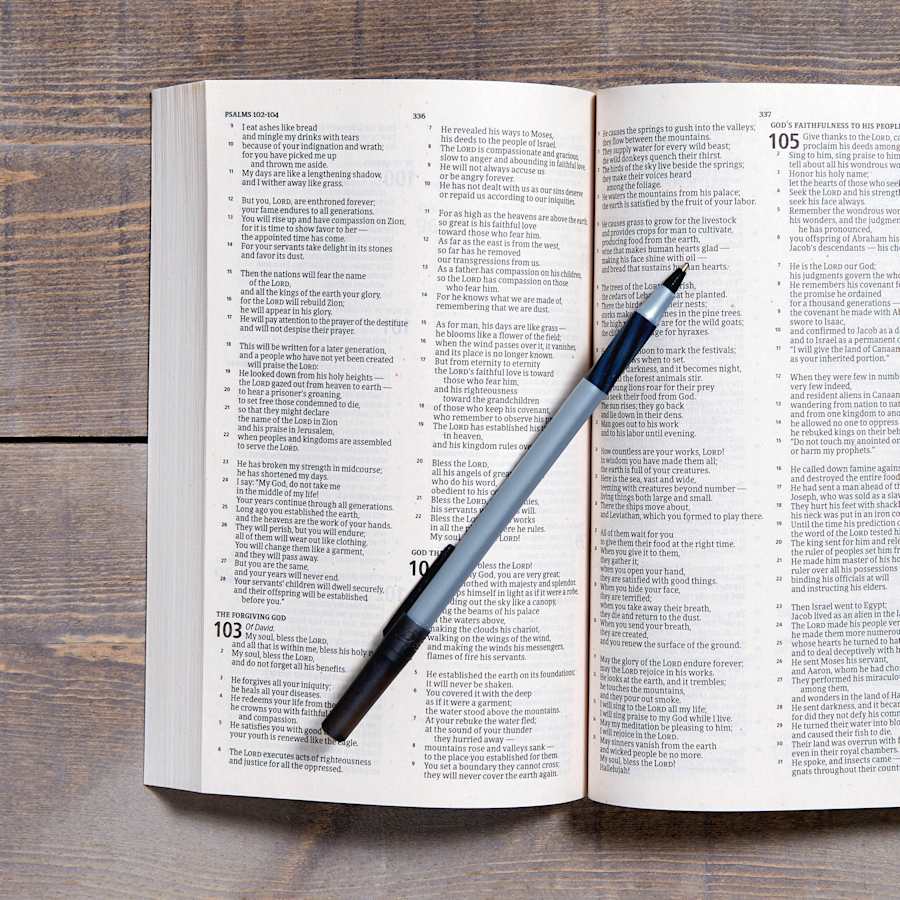 PSALMS 102-104
9 I eat ashes like bread
and mingle my drinks with tears
10 because of your indignation and wrath;
for you have picked me up
and thrown me aside.
11 My days are like a lengthening shadow,
and I wither away like grass.
12 But you, LORD, are enthroned forever;
your fame endures to all generations.
13 You will rise up and have compassion on Zion,
for it is time to show favor to her —
the appointed time has come.
14 For your servants take delight in its stones
and favor its dust.
15 Then the nations will fear the name
of the LORD,
and all the kings of the earth your glory,
16 for the LORD will rebuild Zion;
he will appear in his glory.
17 He will pay attention to the prayer of the destitute
and will not despise their prayer.
18 This will be written for a later generation,
and a people who have not yet been created
will praise the LORD:
19 He looked down from his holy heights —
the LORD gazed out from heaven to earth —
20 to hear a prisoner's groaning,
to set free those condemned to die,
21 so that they might declare
the name of the LORD in Zion
and his praise in Jerusalem,
22 when peoples and kingdoms are assembled
to serve the LORD.
23 He has broken my strength in midcourse;
he has shortened my days.
24 I say: "My God, do not take me
in the middle of my life!
Your years continue through all generations.
25 Long ago you established the earth,
and the heavens are the work of your hands.
26 They will perish, but you will endure;
all of them will wear out like clothing.
You will change them like a garment,
and they will pass away.
27 But you are the same,
and your years will never end.
28 Your servants' children will dwell securely,
and their offspring will be established
before you."
THE FORGIVING GOD
103 Of David.
My soul, bless the LORD,
and all that is within me, bless his holy
2 My soul, bless the LORD,
and do not forget all his benefits.
3 He forgives all your iniquity;
he heals all your diseases.
4 He redeems your life from the
he crowns you with faithful
and compassion.
5 He satisfies you with good
your youth is renewed like the eagle.
6 The LORD executes acts of righteousness
and justice for all the oppressed.
336
7 He revealed his ways to Moses,
his deeds to the people of Israel.
8 The LORD is compassionate and gracious,
slow to anger and abounding in faithful love.
9 He will not always accuse us
or be angry forever.
10 He has not dealt with us as our sins deserve
or repaid us according to our iniquities.
11 For as high as the heavens are above the earth,
so great is his faithful love
toward those who fear him.
12 As far as the east is from the west,
so far has he removed
our transgressions from us.
13 As a father has compassion on his children,
so the LORD has compassion on those
who fear him.
14 For he knows what we are made of,
remembering that we are dust.
15 As for man, his days are like grass —
he blooms like a flower of the field;
16 when the wind passes over it, it vanishes,
and its place is no longer known.
17 But from eternity to eternity
the LORD's faithful love is toward
those who fear him,
and his righteousness
toward the grandchildren
18 of those who keep his covenant,
who remember to observe his
19 The LORD has established his
in heaven,
and his kingdom rules over
20 Bless the LORD,
all his angels of great
who do his word,
obedient to his
21 Bless the LORD,
his servants
22 Bless the LORD, works
in all the he rules.
My soul LORD!
GOD THE
bless the LORD!
God, you are very great;
clothed with majesty and splendor.
himself in light as if it were a robe,
out the sky like a canopy,
the beams of his palace
the waters above,
making the clouds his chariot,
walking on the wings of the wind,
4 and making the winds his messengers,
flames of fire his servants.
5 He established the earth on its foundations;
it will never be shaken.
6 You covered it with the deep
as if it were a garment;
the water stood above the mountains.
7 At your rebuke the water fled;
at the sound of your thunder
they hurried away —
8 mountains rose and valleys sank —
to the place you established for them.
9 You set a boundary they cannot cross;
they will never cover the earth again.
337
He causes the springs to gush into the valleys;
they flow between the mountains.
They supply water for every wild beast;
the wild donkeys quench their thirst.
The birds of the sky live beside the springs;
they make their voices heard
among the foliage.
He waters the mountains from his palace;
the earth is satisfied by the fruit of your labor.
He causes grass to grow for the livestock
and provides crops for man to cultivate,
producing food from the earth,
wine that makes human hearts glad —
making his face shine with oil —
and bread that sustains human hearts.
The trees of the LORD flourish,
the cedars of that he planted.
There the birds their nests;
makes in the pine trees.
The high are for the wild goats;
the for hyraxes.
moon to mark the festivals;
knows when to set.
darkness, and it becomes night,
the forest animals stir.
lions roar for their prey
seek their food from God.
The sun rises; they go back
and lie down in their dens.
Man goes out to his work
and to his labor until evening.
How countless are your works, LORD!
In wisdom you have made them all;
the earth is full of your creatures.
Here is the sea, vast and wide,
teeming with creatures beyond number —
living things both large and small.
There the ships move about,
and Leviathan, which you formed to play there.
All of them wait for you
to give them their food at the right time.
When you give it to them,
they gather it;
when you open your hand,
they are satisfied with good things.
When you hide your face,
they are terrified;
when you take away their breath,
they die and return to the dust.
When you send your breath,
they are created,
and you renew the surface of the ground.
May the glory of the LORD endure forever;
may the LORD rejoice in his works.
He looks at the earth, and it trembles;
he touches the mountains,
and they pour out smoke.
I will sing to the LORD all my life;
I will sing praise to my God while I live.
May my meditation be pleasing to him;
I will rejoice in the LORD.
May sinners vanish from the earth
and wicked people be no more.
My soul, bless the LORD!
Hallelujah!
GOD'S FAITHFULNESS TO HIS PEOPLE
105 Give thanks to the LORD,
proclaim his deeds among
2 Sing to him, sing praise to him
tell about all his wondrous
3 Honor his holy name;
let the hearts of those who seek
4 Seek the LORD and his strength
seek his face always.
5 Remember the wondrous
his wonders, and the
he has pronounced,
6 you offspring of Abraham his
Jacob's descendants — his
7 He is the LORD our God;
his judgments govern the
8 He remembers his covenant
the promise he ordained
for a thousand generations —
9 the covenant he made with
swore to Isaac,
10 and confirmed to Jacob as a
and to Israel as a permanent
11 "I will give the land of Canaan
as your inherited portion."
12 When they were few in number
very few indeed,
and resident aliens in Canaan
13 wandering from nation to
and from one kingdom to
14 he allowed no one to oppress
he rebuked kings on their
15 "Do not touch my anointed
or harm my prophets."
16 He called down famine against
and destroyed the entire food
17 He had sent a man ahead of
Joseph, who was sold as a
18 They hurt his feet with
his neck was put in an iron
19 Until the time his prediction
the word of the LORD tested
20 The king sent for him and
the ruler of peoples set him
21 He made him master of his
ruler over all his possessions
22 binding his officials at will
and instructing his elders.
23 Then Israel went to Egypt;
Jacob lived as an alien in the
24 The LORD made his people
he made them more numerous
25 whose hearts he turned to
and to deal deceptively with
26 He sent Moses his servant,
and Aaron, whom he had
27 They performed his miraculous
among them,
and wonders in the land of
28 He sent darkness, and it
for did they not defy his
29 He turned their water into
and caused their fish to die.
30 Their land was overrun with
even in their royal chambers.
31 He spoke, and insects came —
gnats throughout their